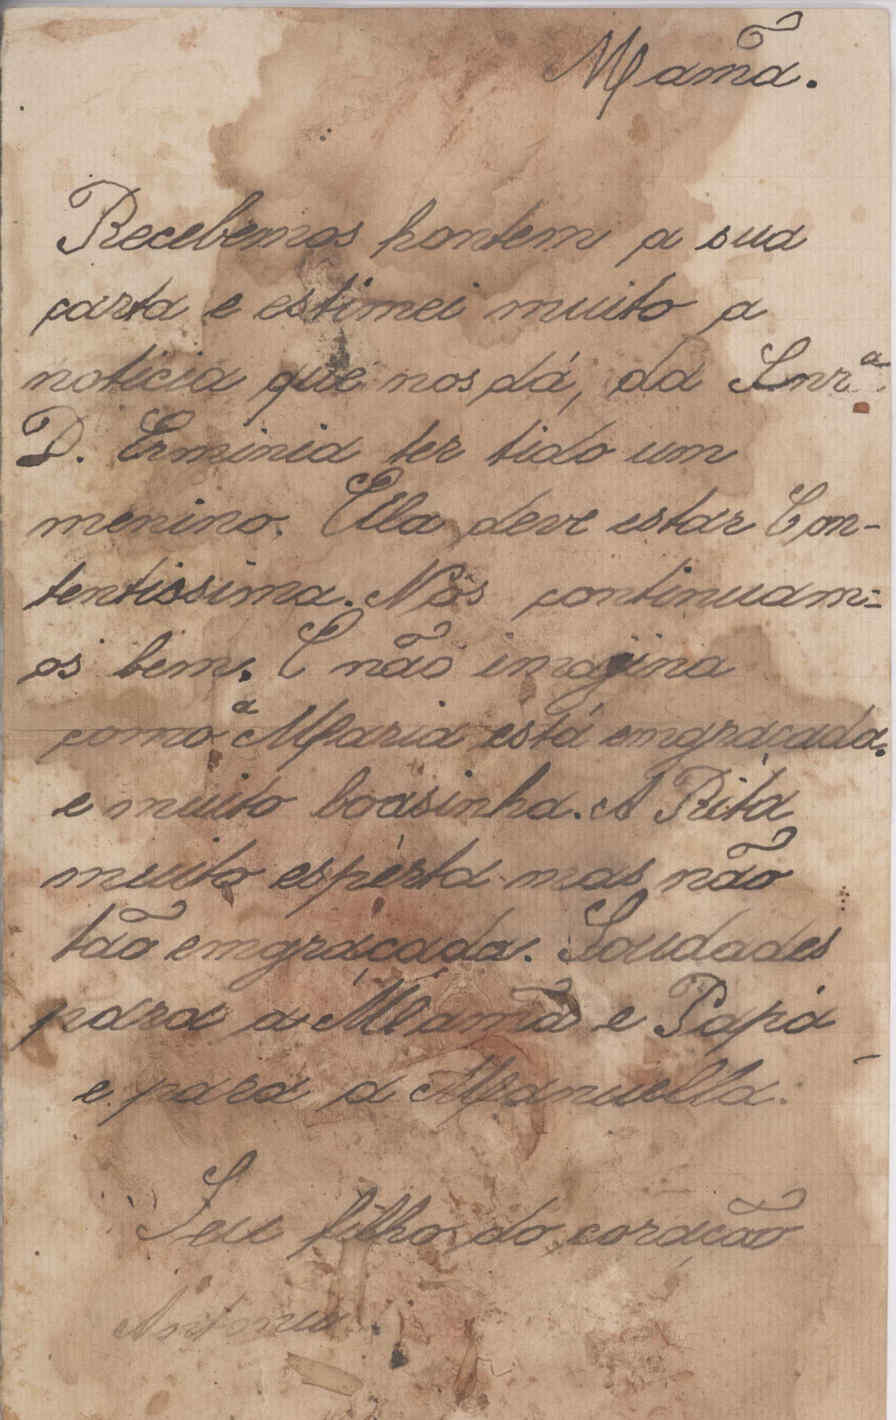 Mamã.
Recebemos hontem a sua
carta e estimei muito a
noticia que nos dá, da Snrª
D. Erminia ter tido um
menino. Ella deve estar Con-
tentissima. Nós continuam=
os bem. E não imagina
como a Maria está emgraçada.
e muito boasinha. A Rita
muito espérta mas não
tão emgraçada. Saudades
para a Mamã e Papá
e para a Manuella.
Seu filho do coração
Antonio.